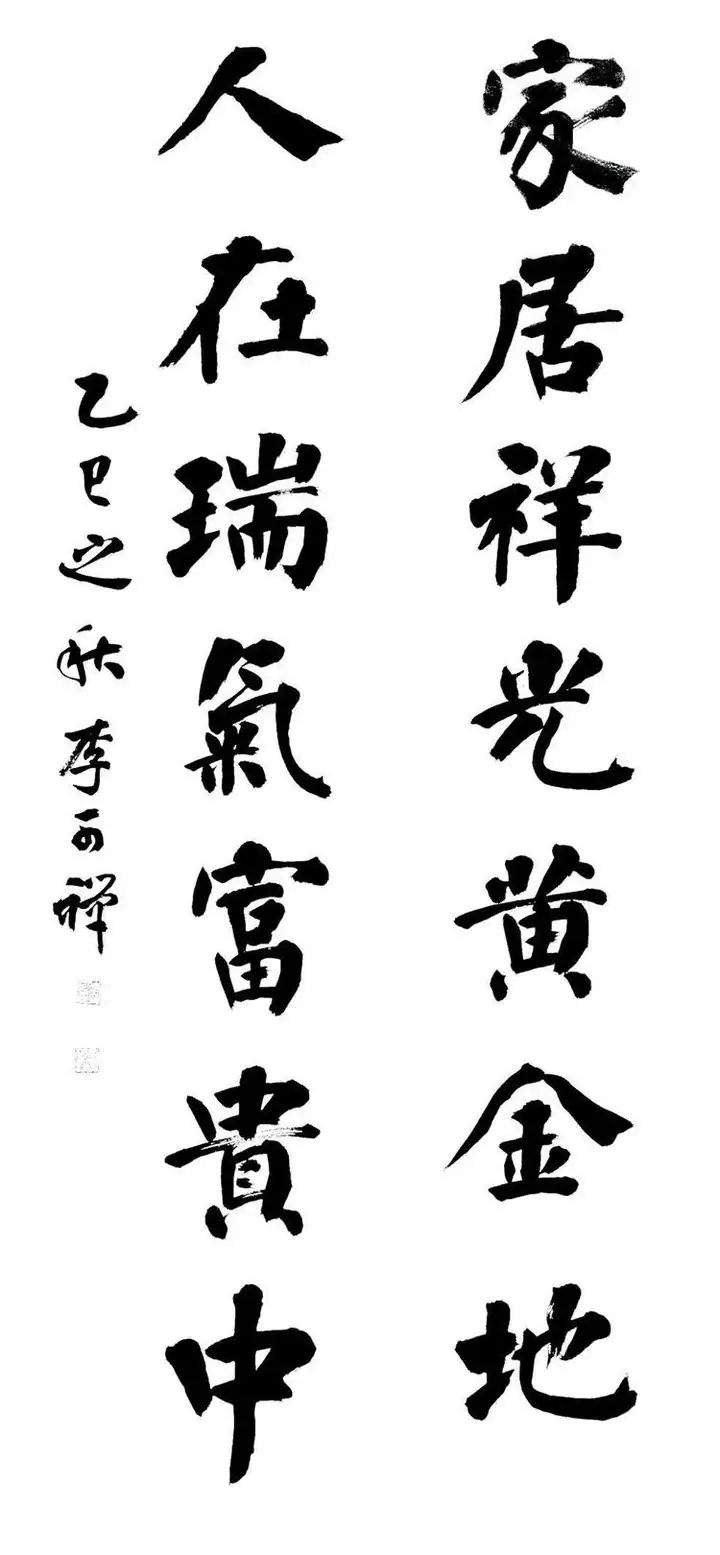 家居祥光黄金地
人在瑞氣富貴中
乙巳之秋李可禅